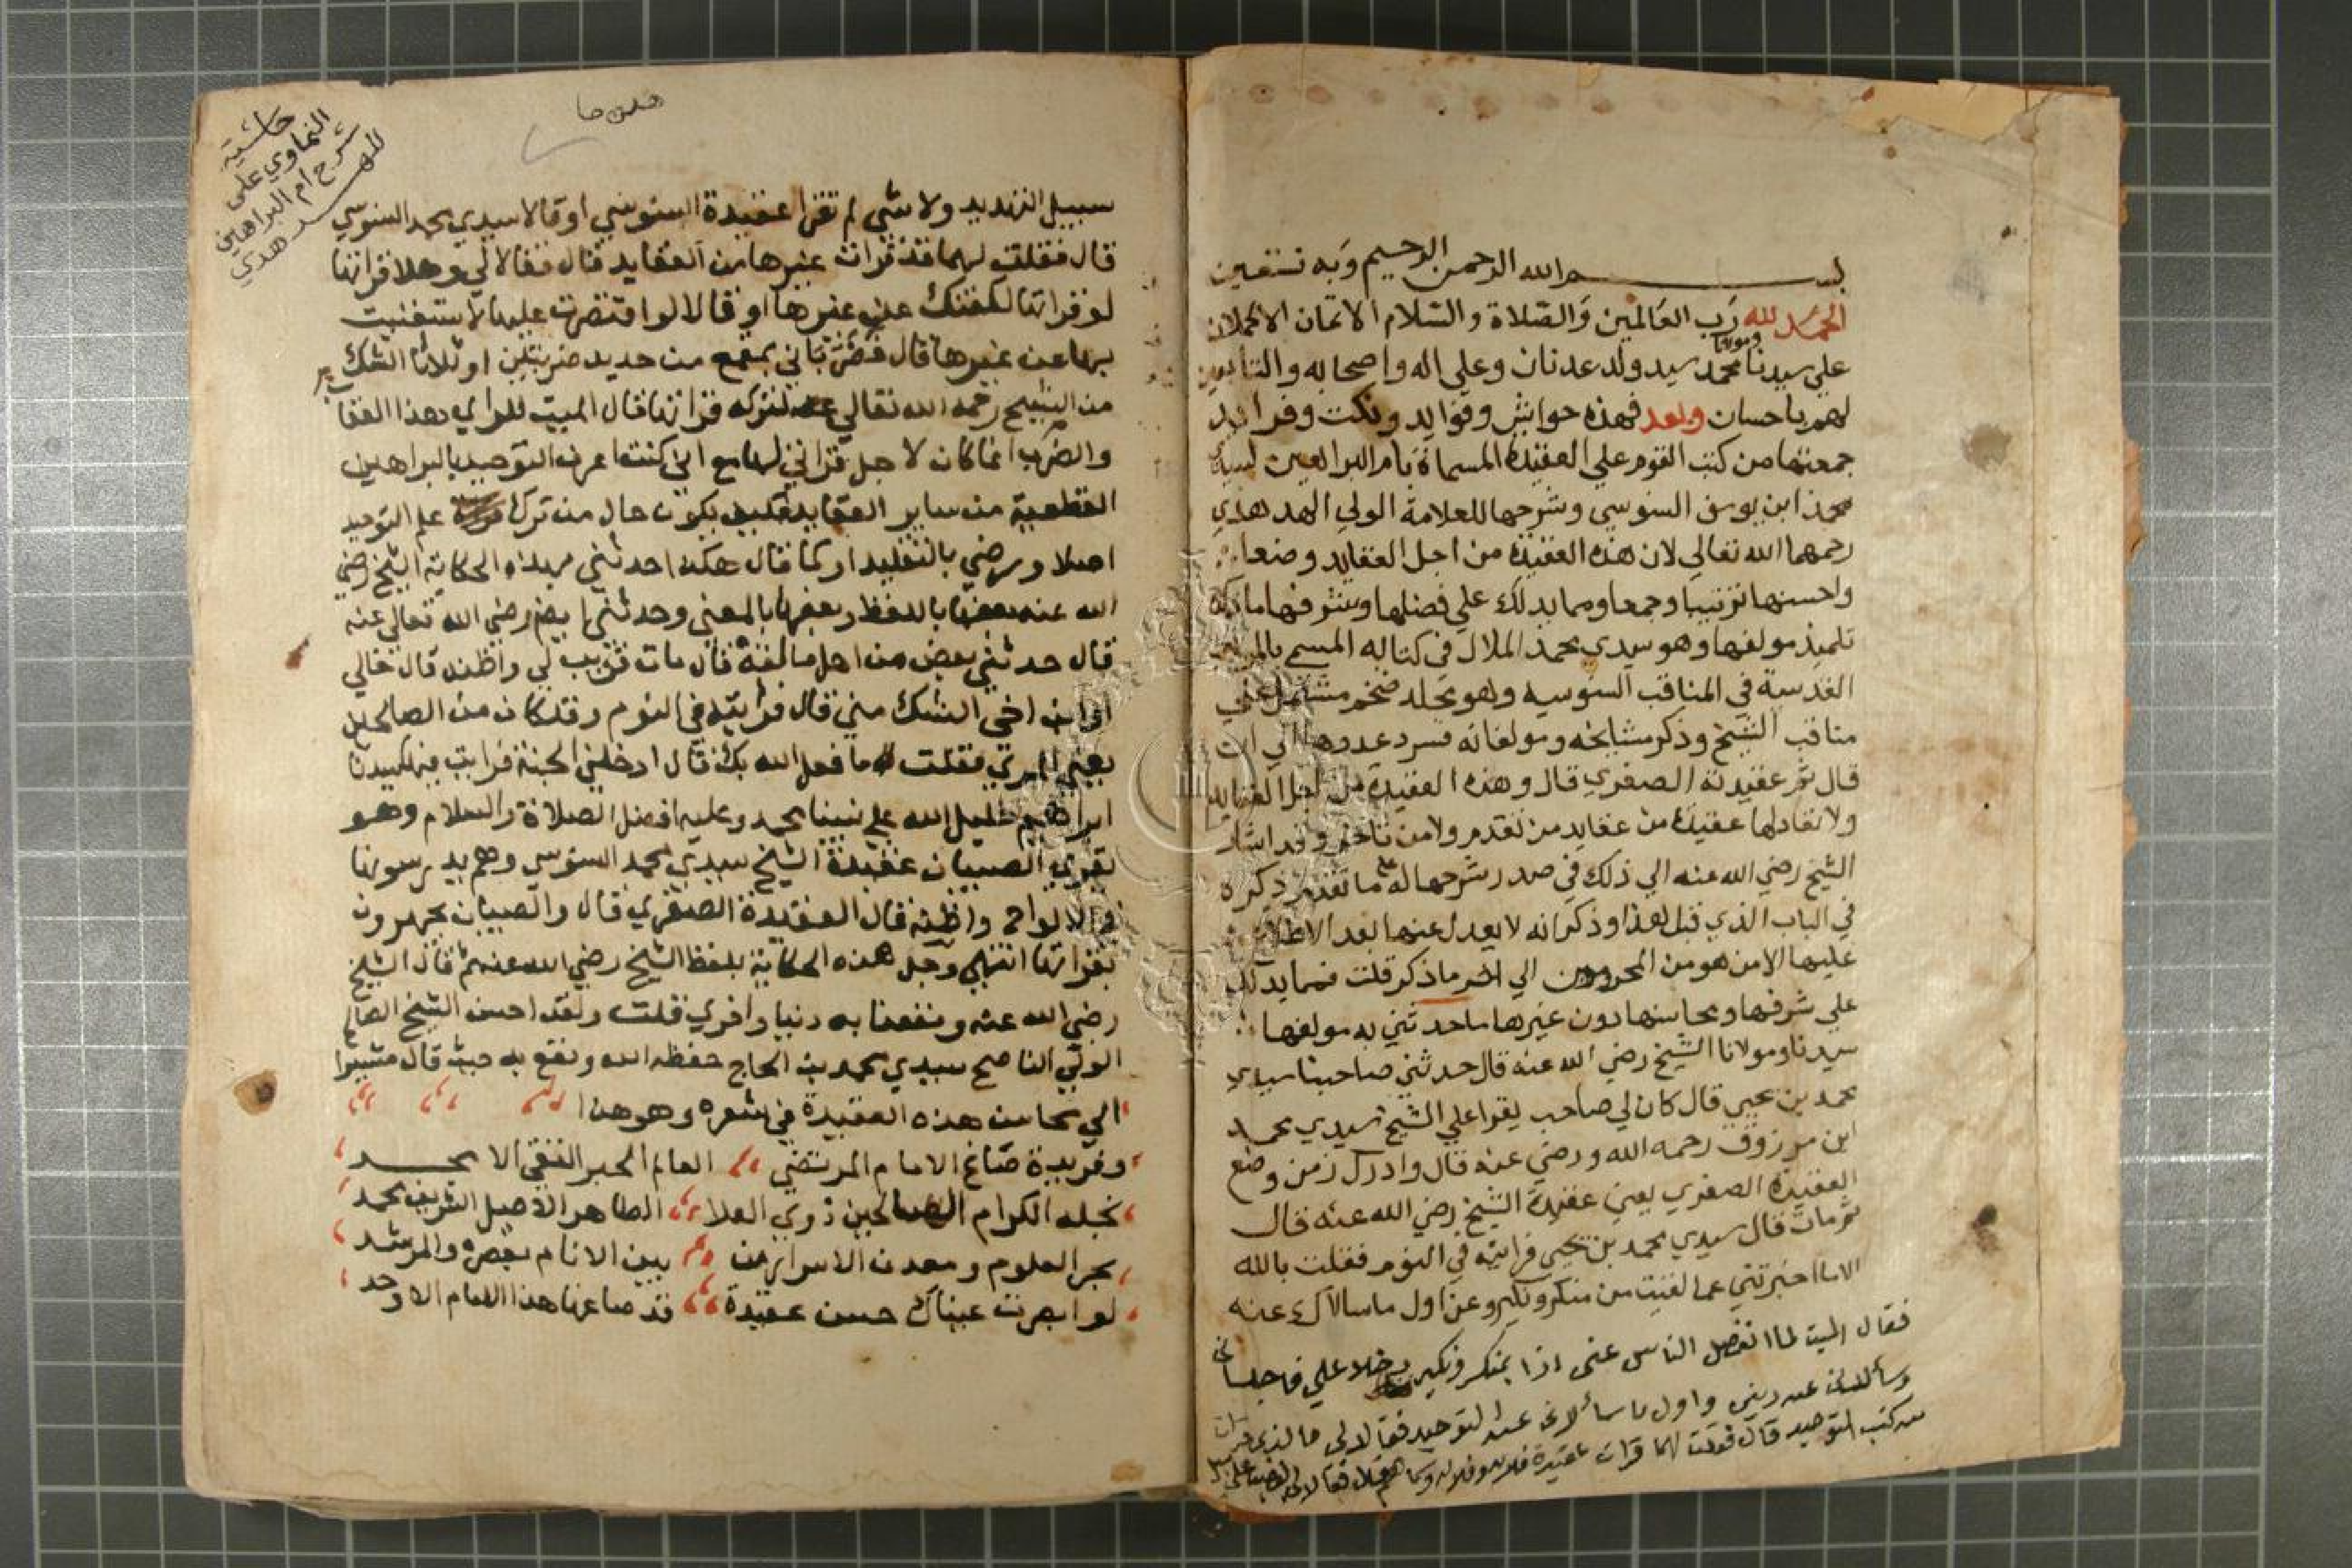 بسم الله الرحمن الرحيم وبه نستعين
الحمد لله رب العالمين والصلاة والسلام الاتمان الاكملان
علي سيدنا ومولانا محمد سيد ولد عدنان وعلي اله واصحابه والتابعين
لهم باحسان وبعد فهذه حواش وفوايد ونكت وفرايد
جمعتها من كتب القوم علي العقيدة المسماة بام البراهين لسيدي
محمد ابن يوسف السنوسي وشرحها للعلامة الولي الهدهدي
رحمهما الله تعالي لان هذه العقيدة من اجل العقايد وضعا
واحسنها ترتيبا وجمعا ومما يدلك علي فضلها وشرفها ما ذكره
تلميذ مولفها وهو سيدي محمد الملالي في كتابه المسمي بالمواهب
القدسية في المناقب السنوسيه وهو مجلد ضخم مشتمل علي
مناقب الشيخ وذكر مشايخه ومولفاته فسرد عدوها الي ان
قال ثم عقيدته الصغري قال وهذه العقيدة من اجل العقايد
ولا تعادلها عقيدة من عقايد من تقدم ولا من تاخر وقد اشار
الشيخ رضي الله عنه الي ذلك في صدر شرحها له علي ما تقدم ذكره
في الباب الذي قبل هذا وذكر انه لا يعدل عنها بعد الاطلاع
عليها الا من هو من المحرومين الي اخر ما ذكر قلت فمما يدلك
علي شرفها ومحاسنها دون غيرها ما حدثني به مولفها
سيدنا ومولانا الشيخ رضي الله عنه قال حدثني صاحبنا سيدي
محمد بن يحيي قال كان لي صاحب يقرا علي الشيخ سيدي محمد
ابن مرزوق رحمه الله ورضي عنه قال وادرك زمن وضع
العقيدة الصغري يعني عقيدة الشيخ رضي الله عنه قال
ثم مات قال سيدي محمد بن يحيي فرايته في النوم فقلت بالله
الا ما اخبرتني عما لقيت من منكر ونكير وعن اول ما سالاك عنه
فقال الميت لما انفصل الناس عني اذا بمنكر ونكير دخلا علي فاجلساني
وسألاني عن ديني واول ما سألاني عن التوحيد فقالا لي ما الذي قرات
من كتب التوحيد قال فقلت لهما قرات عقيدة فلان وفلان وكم فقالا لي علي
حاشية
النماوي على
شرح ام البراهين
للهدهدي
سبيل التهديد ولاي شي لم تقرا عقيدة السنوسي او قالا سيدي محمد السنوسي
قال فقلت لهما قد قرات غيرها من العقايد قال فقالا لي وهلا قراتها
لو قراتها لكفتك عن غيرها او قالا لو اقتصرت عليها لاستغنيت
بها عن غيرها قال فضرباني بمقمع من حديد ضربتين او ثلاثا الشك
من الشيخ رحمه الله تعالي لتركه قراتها قال الميت للراي وهذا العقاب
والضرب انما كان لاجل قراتي لها مع اني كنت اعرف التوحيد بالبراهين
القطعية من ساير العقايد فكيف يكون حال من ترك علم التوحيد
اصلا ورضي بالتقليد او كما قال هكذا حدثني بهذه الحكاية الشيخ رضي
الله عنه بعضها باللفظ وبعضها بالمعني وحدثني ايضا رضي الله تعالي عنه
قال حدثني بعض من اهل مالقة قال مات قريب لي واظنه قال خالي
او ابن اخي الشك مني قال فرايته في النوم وقد كان من الصالحين
يعني المرئي فقلت له ما فعل الله بك فقال ادخلني الجنة فرايت فيها سيدنا
ابراهيم خليل الله علي نبينا محمد وعليه افضل الصلاة والسلام وهو
يقري الصبيان عقيدة الشيخ سيدي محمد السنوسي وهم يدرسونها
في الالواح واظنه قال العقيدة الصغري قال والصبيان يجهرون
بقراتها انتهي وجل هذه الحكاية بلفظ الشيخ رضي الله عنه ثم قال الشيخ
رضي الله عنه ونفعنا به دنيا واخري قلت ولقد احسن الشيخ الصالح
الولي الناصح سيدي محمد بن الحاج حفظه الله ونفع به حيث قال مشيرا
الي محاسن هذه العقيدة في شعره وهو هذا
وفريدة صاغ الامام المرتضي العالم الحبر التقي الامجد
نجله الكرام الصالحين ذوي العلا الطاهر الاصيل الشريف محمد
بحر العلوم ومعدن الاسرار من بين الانام بقصره والمرشد
لو ابصرت عيناك حسن عقيدة قد صاغها هذا الامام الاوحد